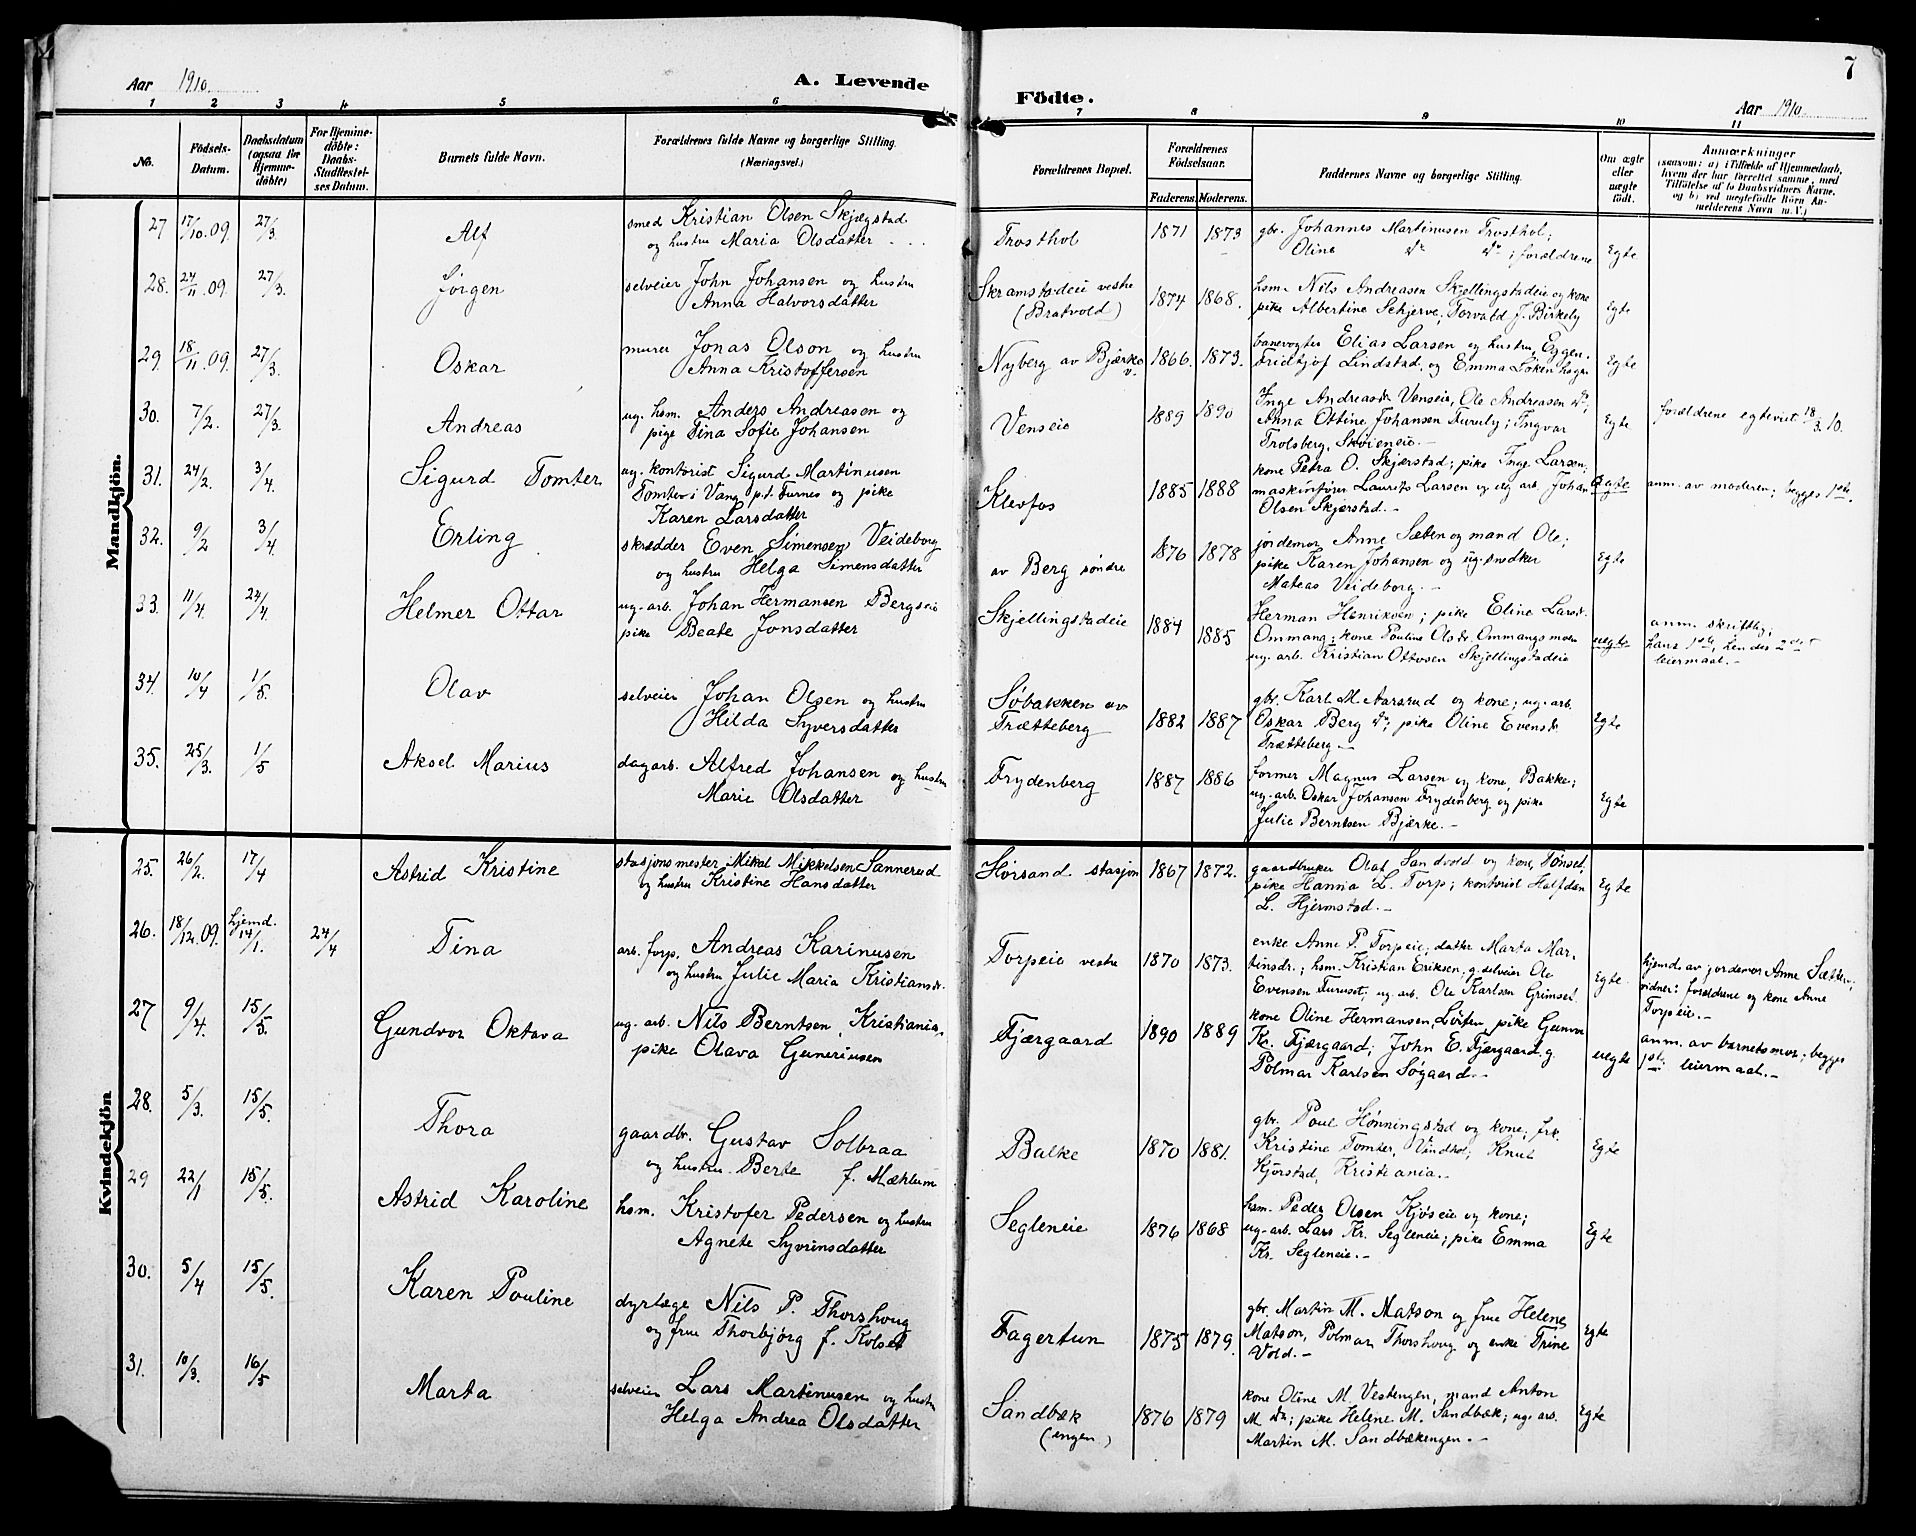 Aar 1910
A. Levende
1 2 3 4 5 6
No.
Födsels-
Datum.
Daabsdatum
(ogsaa for
Hjemme-
döbte)
For Hjemme-
döbte:
Daabs-
Stadfæstel-
ses Datum.
Barnets fulde Navn.
Forældrenes fulde Navne og borgerlige Stilling.
(Næringsvei.)
Mandkjön.
27 17/10.09. 27/3. Alf smed Kristian Olsen Skjægstad
og hustru Maria Olsdatter
28. 24/11.09. 27/3. Jørgen selveier John Johansen og hustru
Anna Halvorsdatter
29. 18/11.09. 27/3. Oskar murer Jonas Olson og hustru
Anna Kristoffersen
30. 7/2. 27/3. Andreas ug. hsm. Anders Andreasen og
pige Tina Sofie Johansen
31. 24/2. 3/4. Sigurd Tomter ug. kontorist Sigurd Martinusen
Tomter i Vang p.t. Furnes og pike
Karen Larsdatter
32. 9/2 3/4. Erling skrædder Even Simensen Veideborg
og hustru Helga Simensdatter
33. 11/4. 24/4. Helmer Ottar ug. arb. Johan Hermansen Bergseie
pike Beate Jonsdatter
34. 10/4 1/5. Olav selveier Johan Olsen og hustru
Hilda Syversdatter
35. 25/3. 1/5 Aksel Marius dagarb. Alfred Johansen og hustru
Marie Olsdatter
Kvindekjön
25. 26/2. 17/4 Astrid Kristine stasjonsmester Mikal Mikkelsen Sannerud
og hustru Kristine Hansdatter
26. 18/12.09. hjemd. 14/1. 24/4 Tina arb. forp. Andreas Karinusen
og hustru Julie Maria Kristiansdr.
27 9/4. 15/5. Gundvor Oktava ug. arb. Nils Berntsen, Kristiania,
pike Olava Guneriusen
28. 5/3. 15/5. Thora gaardbr. Gustav Solbraa
og hustru Berte f. Mæhlum
29 22/1 15/5. Astrid Karoline hsm. Kristofer Pedersen og hustru
Agnete Syvrinsdatter
30. 5/4 15/5. Karen Pouline dyrlæge Nils P. Thorshoug
og frue Thorbjörg f. Kolset
31. 10/3. 16/5 Marta selveier Lars Martinusen og hustru
Helga Andrea Olsdatter
7
Födte.
Aar 1910
7 8 9 10 11
Forældrenes Bopæl.
Forældrenes
Födselsaar.
Faderens. Moderens.
Faddernes Navne og borgerlige Stilling.
Om ægte
eller
uægte
födt.
Anmærkninger
(saasom: a) i Tilfælde af Hjemmedaab,
hvem der har forrettet samme, med
Tilföielse af to Daabsvidners Navne,
og b) ved uægtefödte Börn An-
melderens Navn m. V.)
Trosthol 1871 1873 gbr. Johannes Martinusen Trosthol;
Oline do do; forældrene Egte
Skramstadeie vestre
(Bratvold) 1874 1868. hsm. Nils Andreasen Skjellingstadeie og kone
pike Albertine Schjerve, Torvald J. Birkely Egte
Nyberg av Bjærke v. 1866. 1873. banevogter Elias Larsen og hustru, Eggen.
Fridtjof Lindstad, og Emma Löken Egte
Venseie 1889 1890 Inge Andreasdr. Venseie, Ole Andreasen do;
Anna Ottine Johansen Furuly; Ingvar
Trolsberg, Skvieneie.- Egte forældrene egteviet 18/3. 10.
Klevfos 1885 1888 kone Petra O. Skjærstad; pike Inga Larsen;
maskinfører Laurits Larsen og ug. arb. Johan
Olsen Skjærstad.- anm. av moderen; begges 1ste.
av Berg söndre 1876 1878 jordemor Anne Sæten og mand Ole;
pike Karen Johansen og ug. snedker
Mateas Veideborg.- Egte
Skjellingstadeie 1884 1885 Herman Henriksen; pike Eline Larsdr.
Ommang; kone Pauline Olsdr. Ommangsmoen
ug. arb. Kristian Ottosen Skjellingstadeie uegte anm. skriftlig;
hans 1ste, hendes 2det
leiermaal.-
Søbakken av
Trætteberg 1882 1887 gbr. Karl M. Aarsrud og kone; ug. arb.
Oskar Berg do; pike Oline Evensdr.
Trætteberg.- Egte
Frydenberg 1887 1886 former Magnus Larsen og kone, Bakke;
ug. arb. Oskar Johansen Frydenberg og pike
Julie Berntsen Bjærke.- Egte
Hørsand stasjon 1867 1872. gaardbruker Olaf Sandvold og kone, Tönset,
pike Hanna L. Torp; kontorist Halfdan
L. Hjermstad.- Egte
Torpeie vestre 1870 1873. enke Anne P. Torpeie, datter Marta Mar-
tinsdr.; hsm. Kristian Eriksen, g. selveier Ole
Evensen Furuset; ug. arb. Ole Karlsen Grimset. Egte hjemd. av jordemor Anne Sætten,
vidner: forældrene og kone Anne
Torpeie.-
Fjærgaard 1890 1889 kone Oline Hermansen, Löiten, pike Gunvor
Kr. Fjærgaard; John E. Fjærgaard g.
Polmar Karlsen Søgaard.- uegte anm. av barnets mor; begges
1ste leiermaal.-
Balke 1870 1881. gbr. Poul Hønningstad og kone; frk.
Kristine Tomter, Vindhol; Knut
Kjörstad, Kristiania.- Egte
Segleneie 1876 1868 hsm. Peder Olsen Kjöseie og kone;
ug. arb. Lars Kr. Segleneie; pike Emma
Kr. Segleneie.- Egte
Fagertun 1875 1879. gbr. Martin M. Matson og frue Helene
Matson, Polmar Thorshoug og enke Trine
Vold.- Egte
Sandbæk
(engen) 1876 1879 kone Oline M. Vestengen, mand Anton
M do; pike Helene M. Sandbæk; ug. arb.
Martin M. Sandbækengen.- Egte